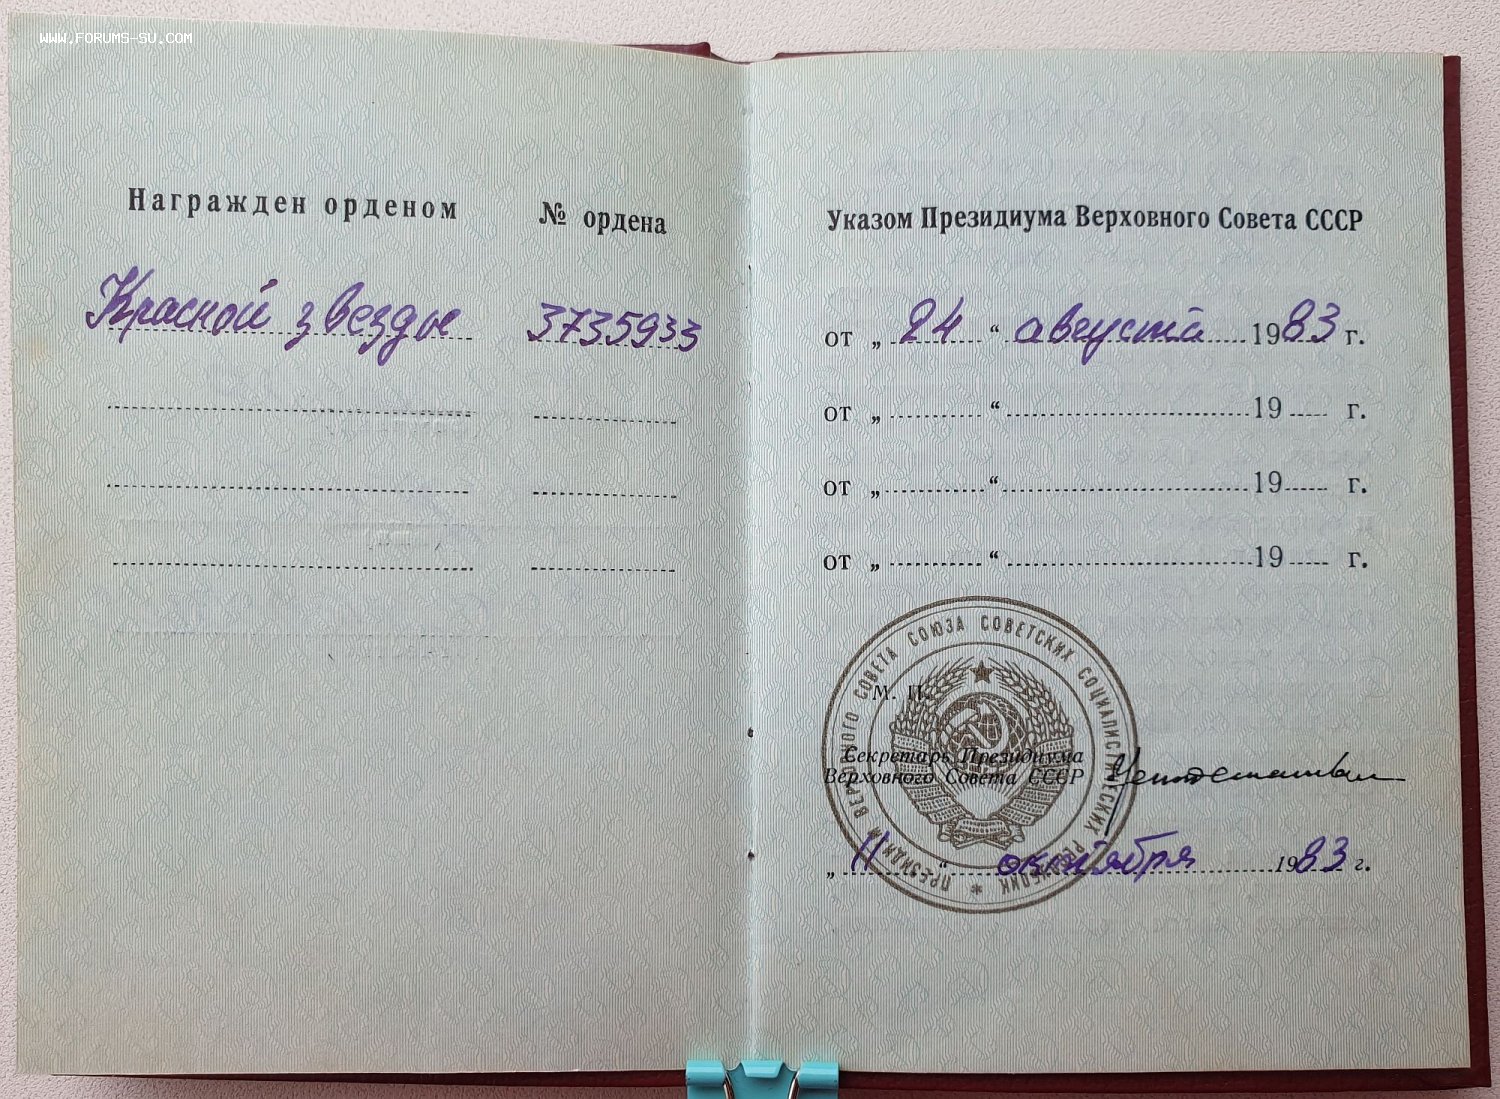 WWW.FORUMS-SU.COM
Награжден орденом № ордена
Красной звезды 3735933
Указом Президиума Верховного Совета СССР
от „ 24 “ августа 1983 г.
от „ “ 19 г.
от „ “ 19 г.
от „ “ 19 г.
ПРЕЗИДИУМ ВЕРХОВНОГО СОВЕТА СОЮЗА СОВЕТСКИХ СОЦИАЛИСТИЧЕСКИХ РЕСПУБЛИК *
М. П.
Секретарь Президиума
Верховного Совета СССР
„ 11 “ октября 1983 г.